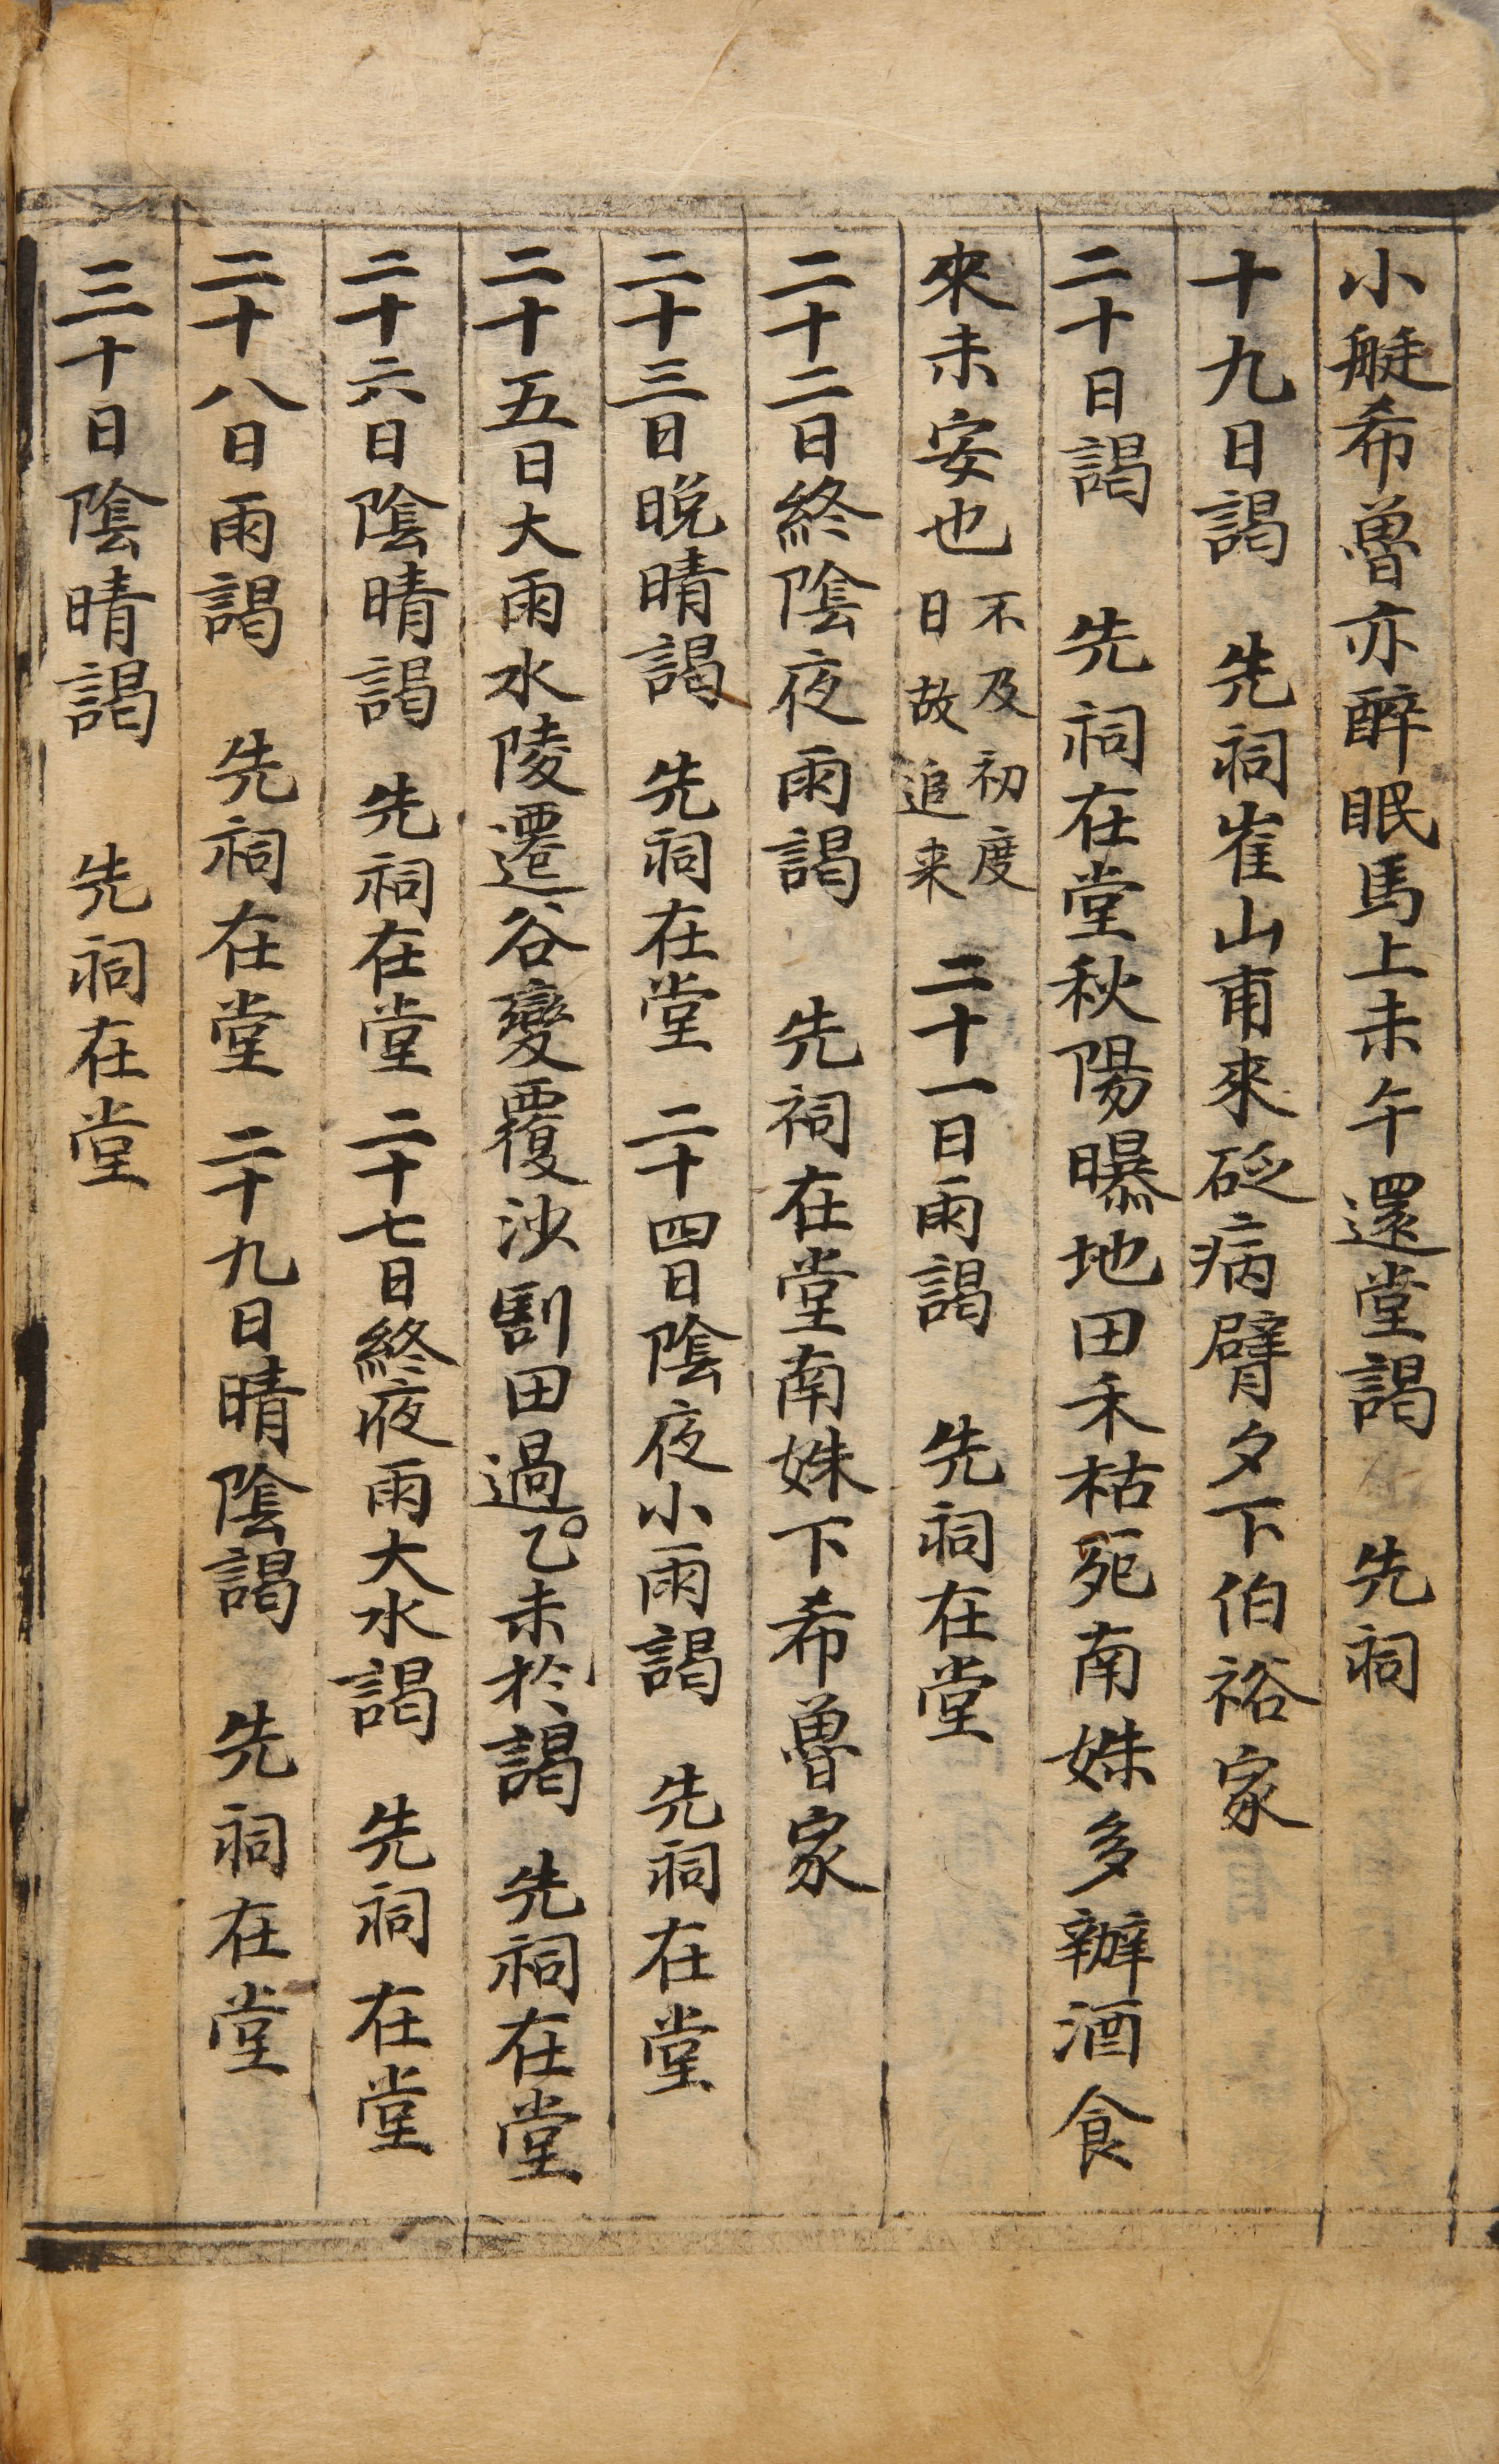 小艇希魯亦醉眠馬上未午還堂謁 先祠
十九日謁 先祠崔山甫來砭病臂夕下伯裕家
二十日謁 先祠在堂秋陽曝地田禾枯死南姝多辦酒食
來未安也不及初度日故追来 二十一日雨謁 先祠在堂
二十二日終陰夜雨謁 先祠在堂南姝下希魯家
二十三日晩晴謁 先祠在堂 二十四日陰夜小雨謁 先祠在堂
二十五日大雨水陵遷谷變覆沙割田過乙未於謁 先祠在堂
二十六日陰晴謁 先祠在堂 二十七日終夜雨大水謁 先祠在堂
二十八日雨謁 先祠在堂 二十九日晴陰謁 先祠在堂
三十日陰晴謁 先祠在堂